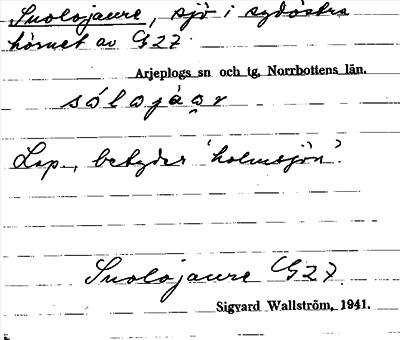 Suolojaure, sjö i sydöstra
hörnet av G27.
Arjeplogs sn och tg, Norrbottens län.
Lap., betyder 'holmsjön'.
Suolojaure G27.
Sigvard Wallström, 1941.